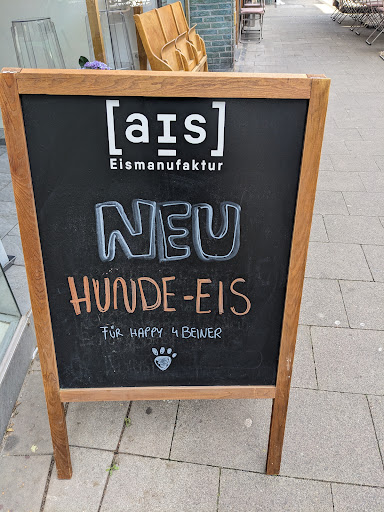 [aıs]
Eismanufaktur
NEU
HUNDE-EIS
FÜR HAPPY 4 BEINER